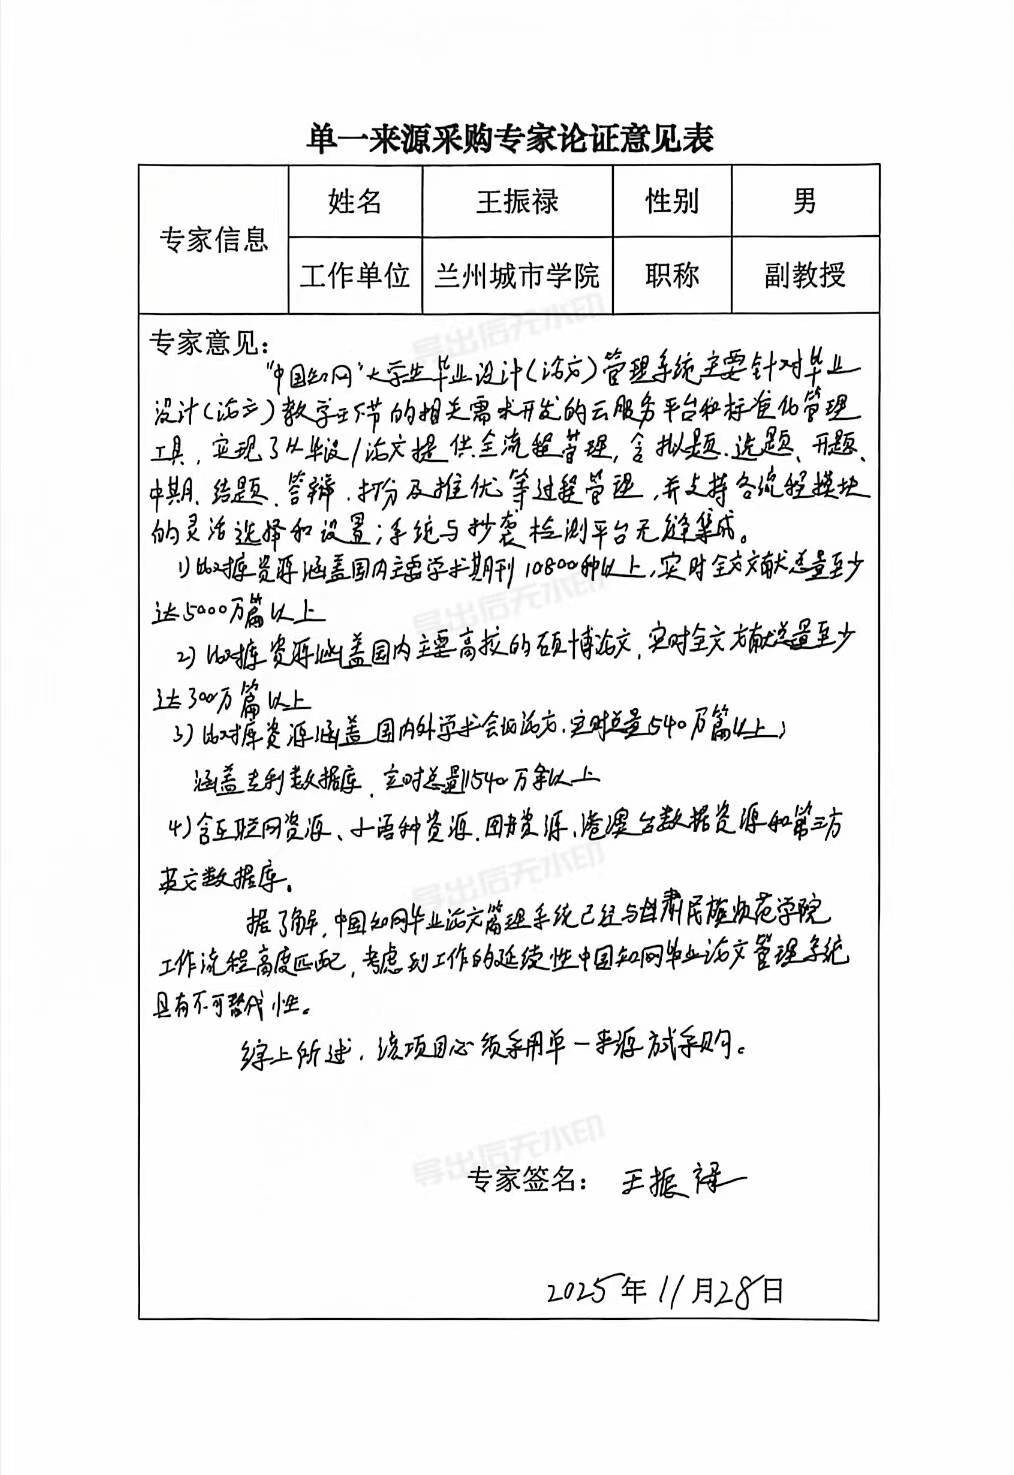 单一来源采购专家论证意见表
专家信息 姓名 王振禄 性别 男
工作单位 兰州城市学院 职称 副教授
专家意见：
“中国知网”大学生毕业设计（论文）管理系统主要针对毕业
设计（论文）教学环节的相关需求开发的云服务平台和标准化管理
工具，实现了从毕设/论文提供全流程管理，含拟题、选题、开题、
中期、结题、答辩、打分及推优等过程管理，并支持各流程模块
的灵活选择和设置；系统与抄袭检测平台无缝集成。
1）比对库资源涵盖国内主要学术期刊10800种以上，实时全文文献总量至少
达5000万篇以上
2）比对库资源涵盖国内主要高校的硕博论文，实时全文文献总量至少
达300万篇以上
3）比对库资源涵盖国内外学术会议论文，实时总量540万篇以上；
涵盖专利数据库，实时总量1540万条以上
4）含互联网资源、小语种资源、图书资源、港澳台数据资源和第三方
英文数据库。
据了解，中国知网毕业论文管理系统已经与甘肃民族师范学院
工作流程高度匹配，考虑到工作的延续性中国知网毕业论文管理系统
具有不可替代性。
综上所述，该项目必须采用单一来源方式采购。
专家签名：王振禄
2025年11月28日
导出后无水印
导出后无水印
导出后无水印
导出后无水印